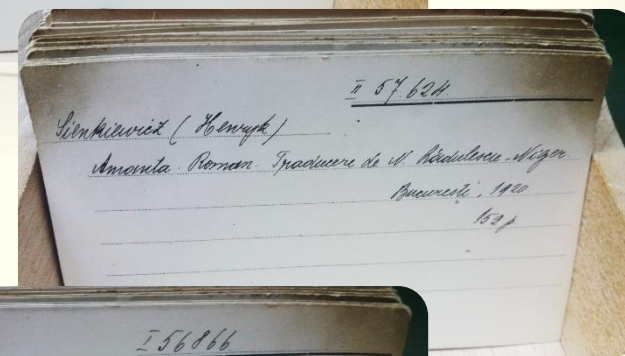 II 57.624
Sienkiewicz (Henryk)
Amanta. Roman. Traducere de N. Rădulescu-Niger
Bucureşti, 1920
159 p
I 56866